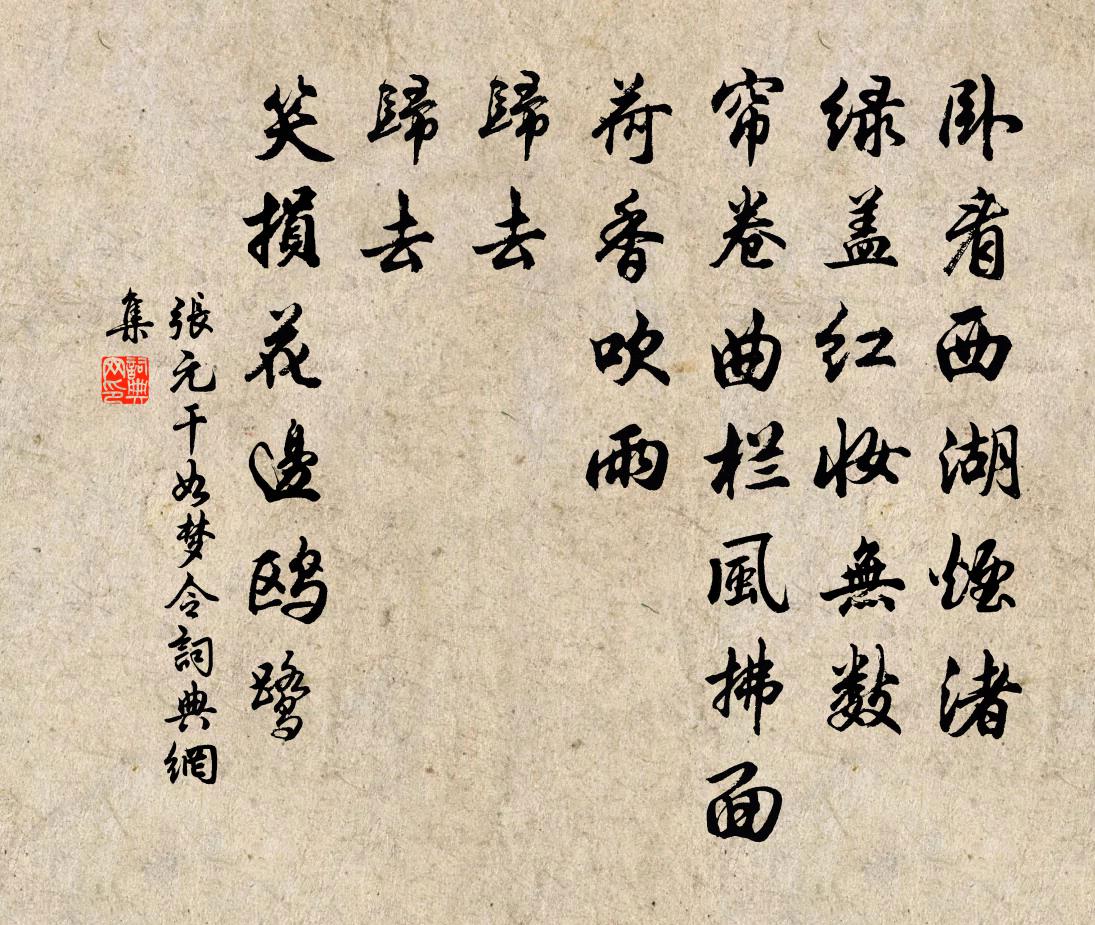 卧看西湖煙渚
绿盖红妆無数
帘卷曲栏風拂面
荷香吹雨
歸去
歸去
笑損花邊鸥鹭
張元干如梦令詞典網
集
詞典網印